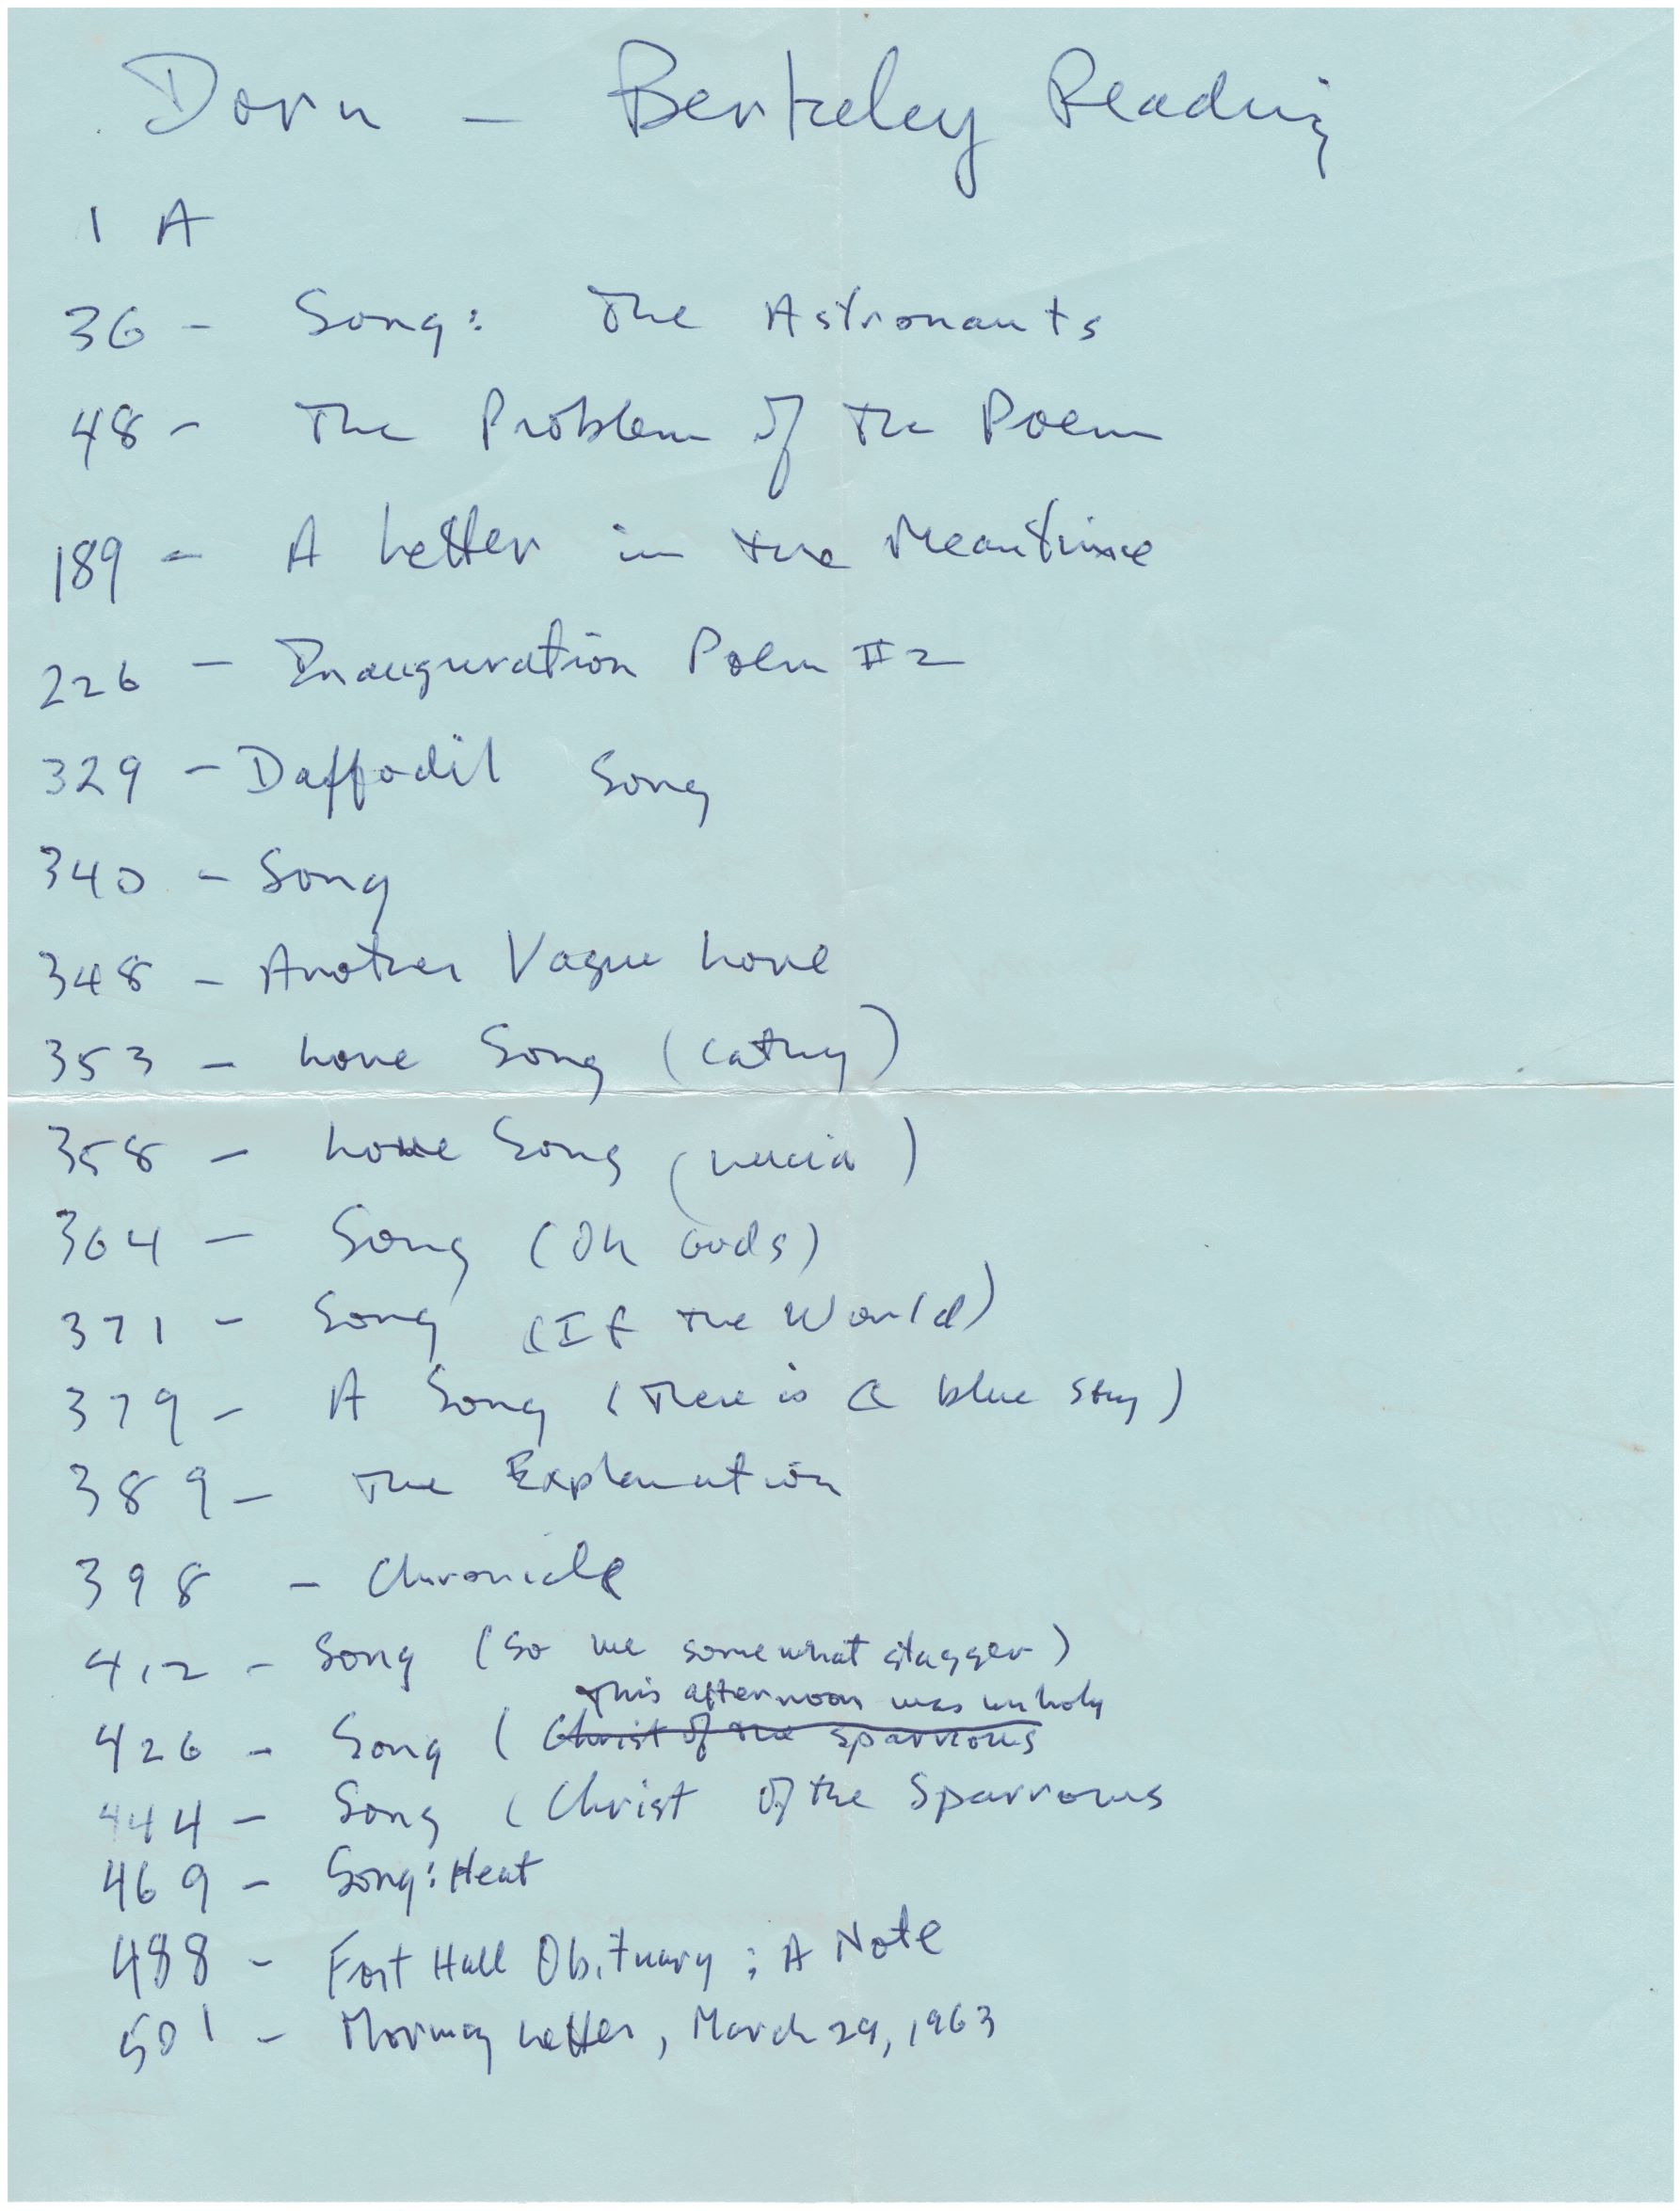 Dorn - Berkeley Reading
1 A
36 - Song: The Astronauts
48 - The Problem of the Poem
189 - A Letter in the Meantime
226 - Inauguration Poem #2
329 - Daffodil Song
340 - Song
348 - Another Vague Love
353 - Love Song (Cathy)
358 - Love Song (Lucia)
364 - Song (Oh Gods)
371 - Song (If the World)
379 - A Song (There is a blue sky)
389 - The Explanation
398 - Chronicle
412 - Song (So we somewhat stagger)
This afternoon was unholy
426 - Song (Christ of the sparrows
444 - Song (Christ of the Sparrows
469 - Song: Heat
488 - Fort Hall Obituary: A Note
501 - Morning Letter, March 29, 1963